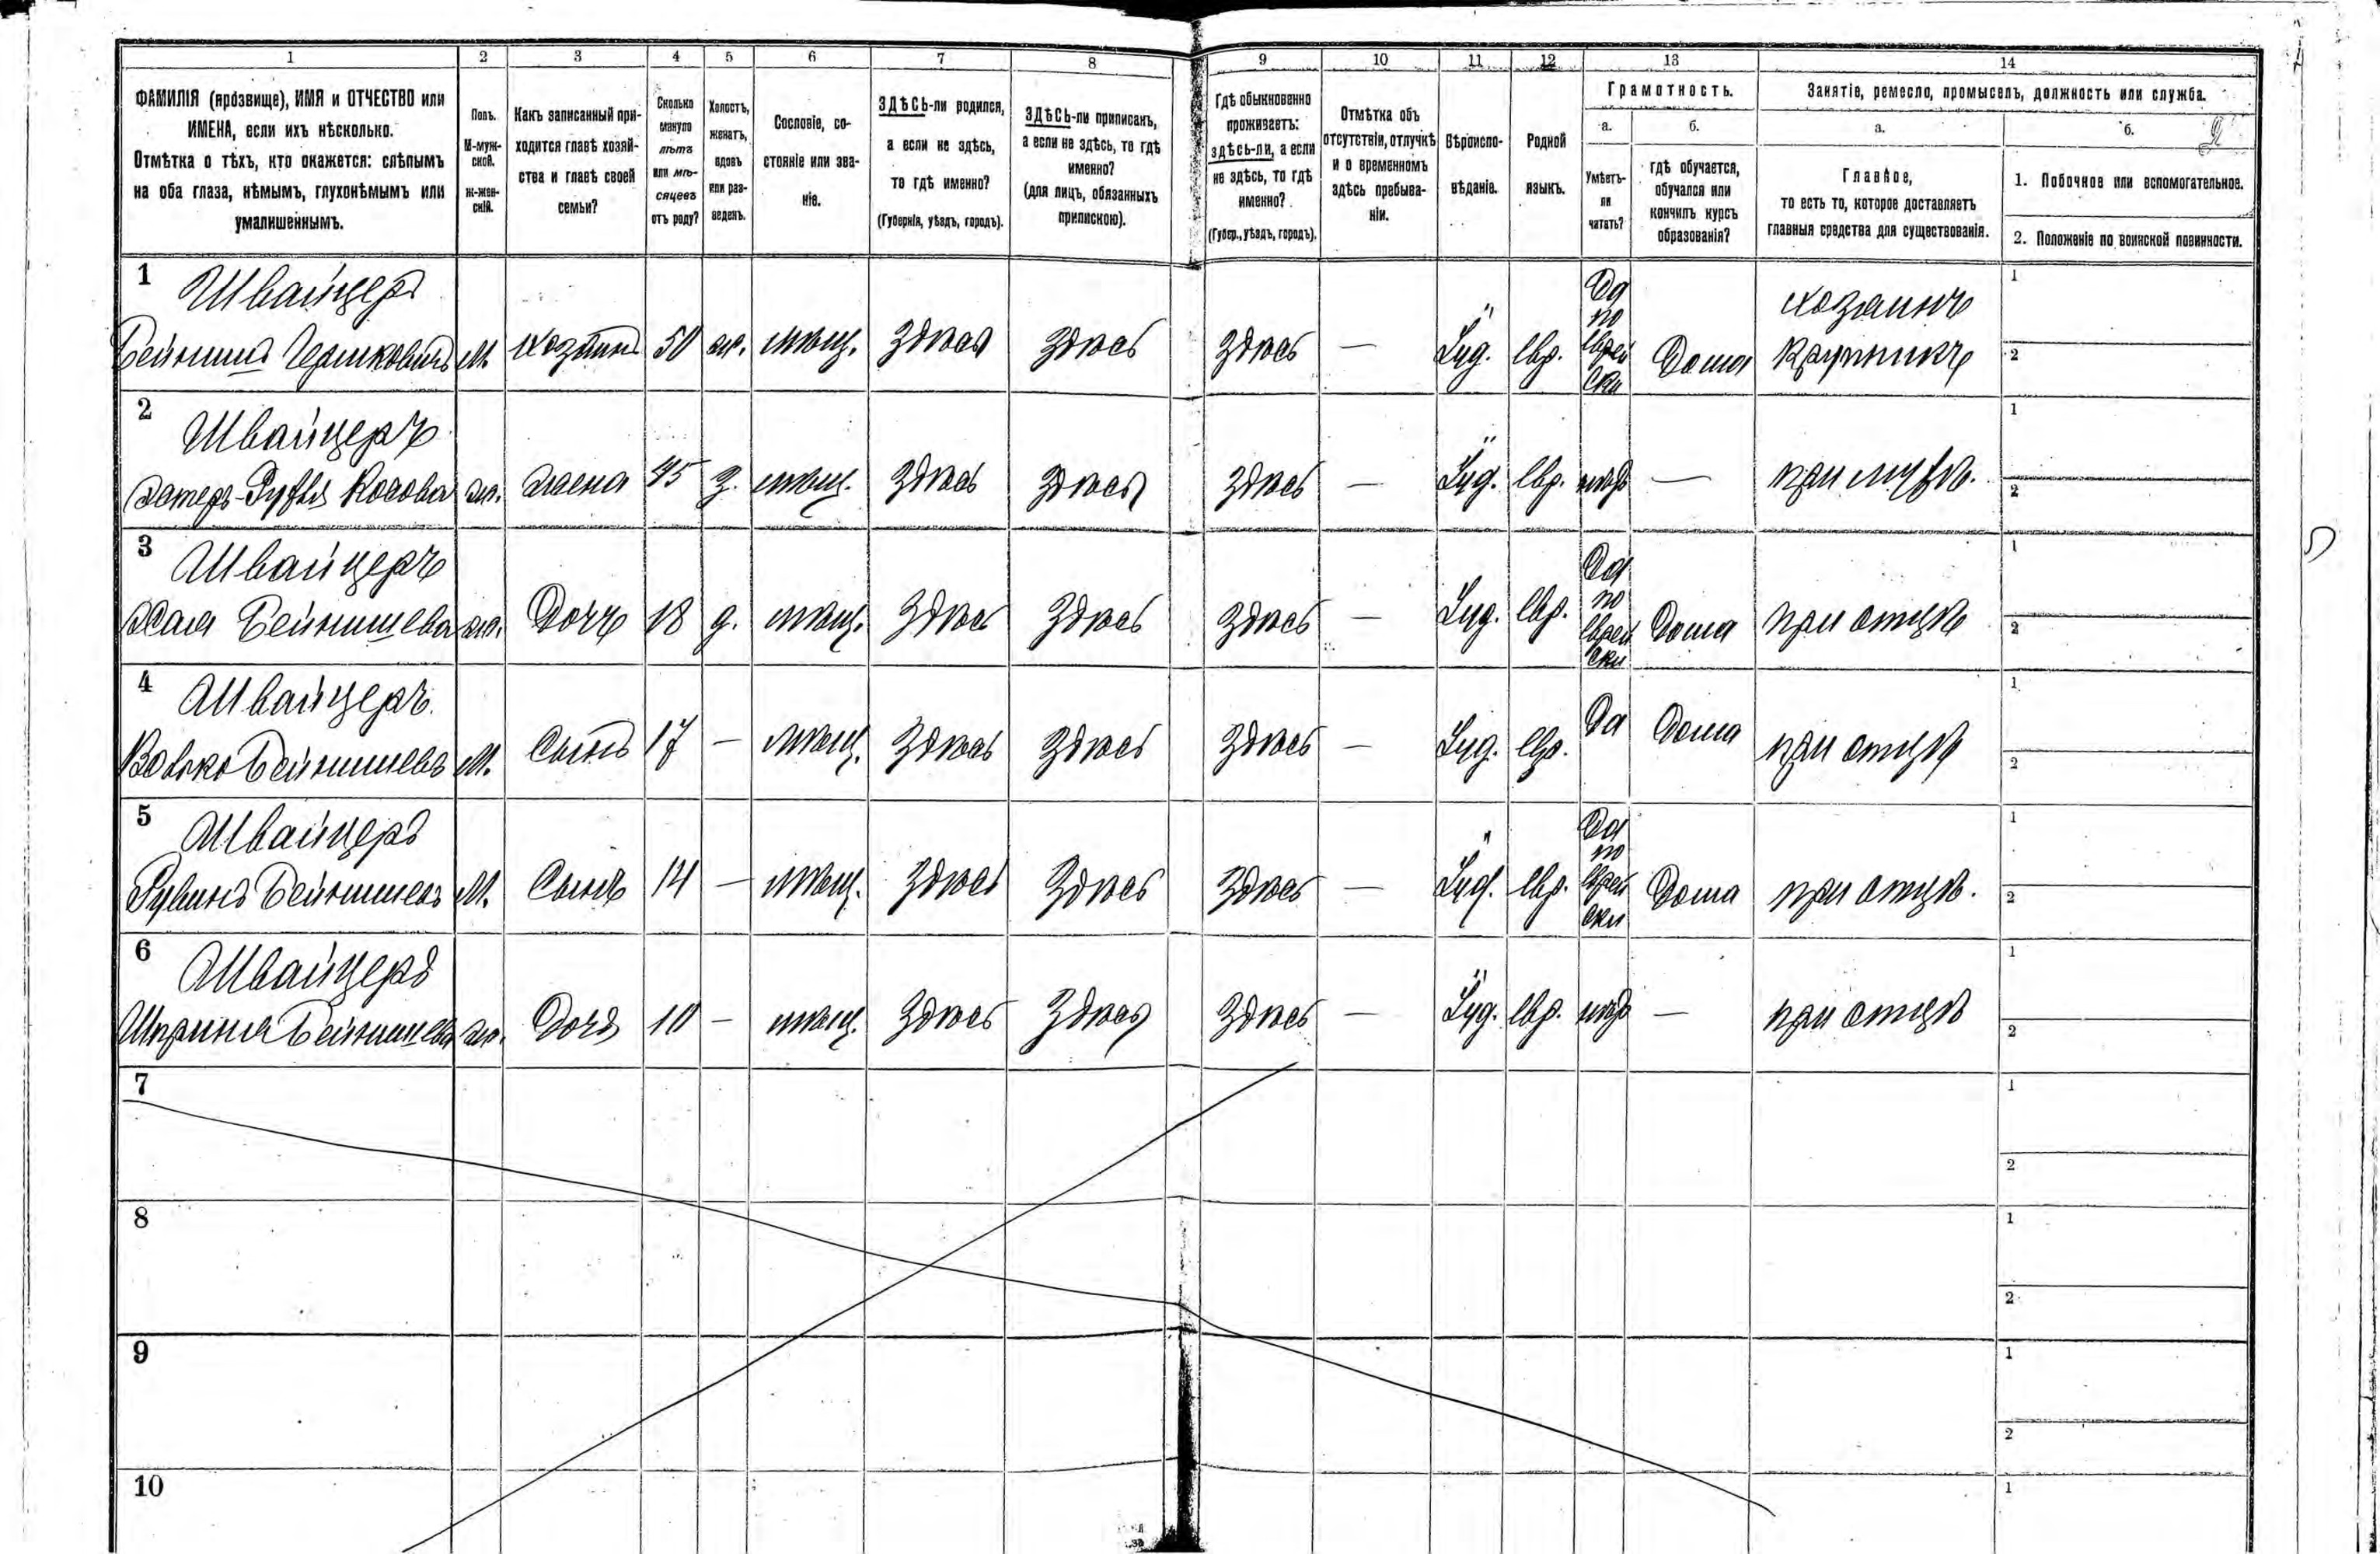 1 2 3 4 5 6 7 8 9 10 11 12 13 14
ФАМИЛІЯ (прозвище), ИМЯ и ОТЧЕСТВО или
ИМЕНА, если ихъ нѣсколько.
Отмѣтка о тѣхъ, кто окажется: слѣпымъ
на оба глаза, нѣмымъ, глухонѣмымъ или
умалишеннымъ.
Полъ.
М-муж-
ской.
ж-жен-
скій.
Какъ записанный при-
ходится главѣ хозяй-
ства и главѣ своей
семьи?
Сколько
минуло
лѣтъ
или мѣ-
сяцевъ
отъ роду?
Холостъ,
женатъ,
вдовъ
или раз-
веденъ.
Сословіе, со-
стояніе или зва-
ніе.
ЗДѢСЬ-ли родился,
а если не здѣсь,
то гдѣ именно?
(Губернія, уѣздъ, городъ).
ЗДѢСЬ-ли приписанъ,
а если не здѣсь, то гдѣ
именно?
(для лицъ, обязанныхъ
припискою).
Гдѣ обыкновенно
проживаетъ:
здѣсь-ли, а если
не здѣсь, то гдѣ
именно?
(Губер., уѣздъ, городъ).
Отмѣтка объ
отсутствіи, отлучкѣ
и о временномъ
здѣсь пребыва-
ніи.
Вѣроиспо-
вѣданіе.
Родной
языкъ.
Грамотность.
а.
Умѣетъ-
ли
читать?
б.
гдѣ обучается,
обучался или
кончилъ курсъ
образованія?
Занятіе, ремесло, промыселъ, должность или служба.
а.
Главное,
то есть то, которое доставляетъ
главныя средства для существованія.
б.
2
1. Побочное или вспомогательное.
2. Положеніе по воинской повинности.
1 Швайцеръ
Бейнишъ Гершковичъ М. хозяинъ 50 ж. мѣщ. здѣсь здѣсь здѣсь — Іуд. евр. Да по еврейски Дома хозяинъ
1
2
2 Швайцеръ
ж. жена 45 з. мѣщ. здѣсь здѣсь здѣсь — Іуд. евр. нѣтъ — при мужѣ.
1
2
3 Швайцеръ
Хая Бейнишева ж. Дочь 18 д. мѣщ. здѣсь здѣсь здѣсь — Іуд. евр. Да по еврейски Дома при отцѣ
1
2
4 Швайцеръ
Вовько Бейнишевъ М. Сынъ 17 — мѣщ. здѣсь здѣсь здѣсь — Іуд. евр. Да Дома при отцѣ
1
2
5 Швайцеръ
Рувинъ Бейнишевъ М. Сынъ 14 — мѣщ. здѣсь здѣсь здѣсь — Іуд. евр. Да по еврейски Дома при отцѣ.
1
2
6 Швайцеръ
Шприня Бейнишева ж. Дочь 10 — мѣщ. здѣсь здѣсь здѣсь — Іуд. евр. нѣтъ — при отцѣ
1
2
7
1
2
8
1
2
9
1
2
10
1